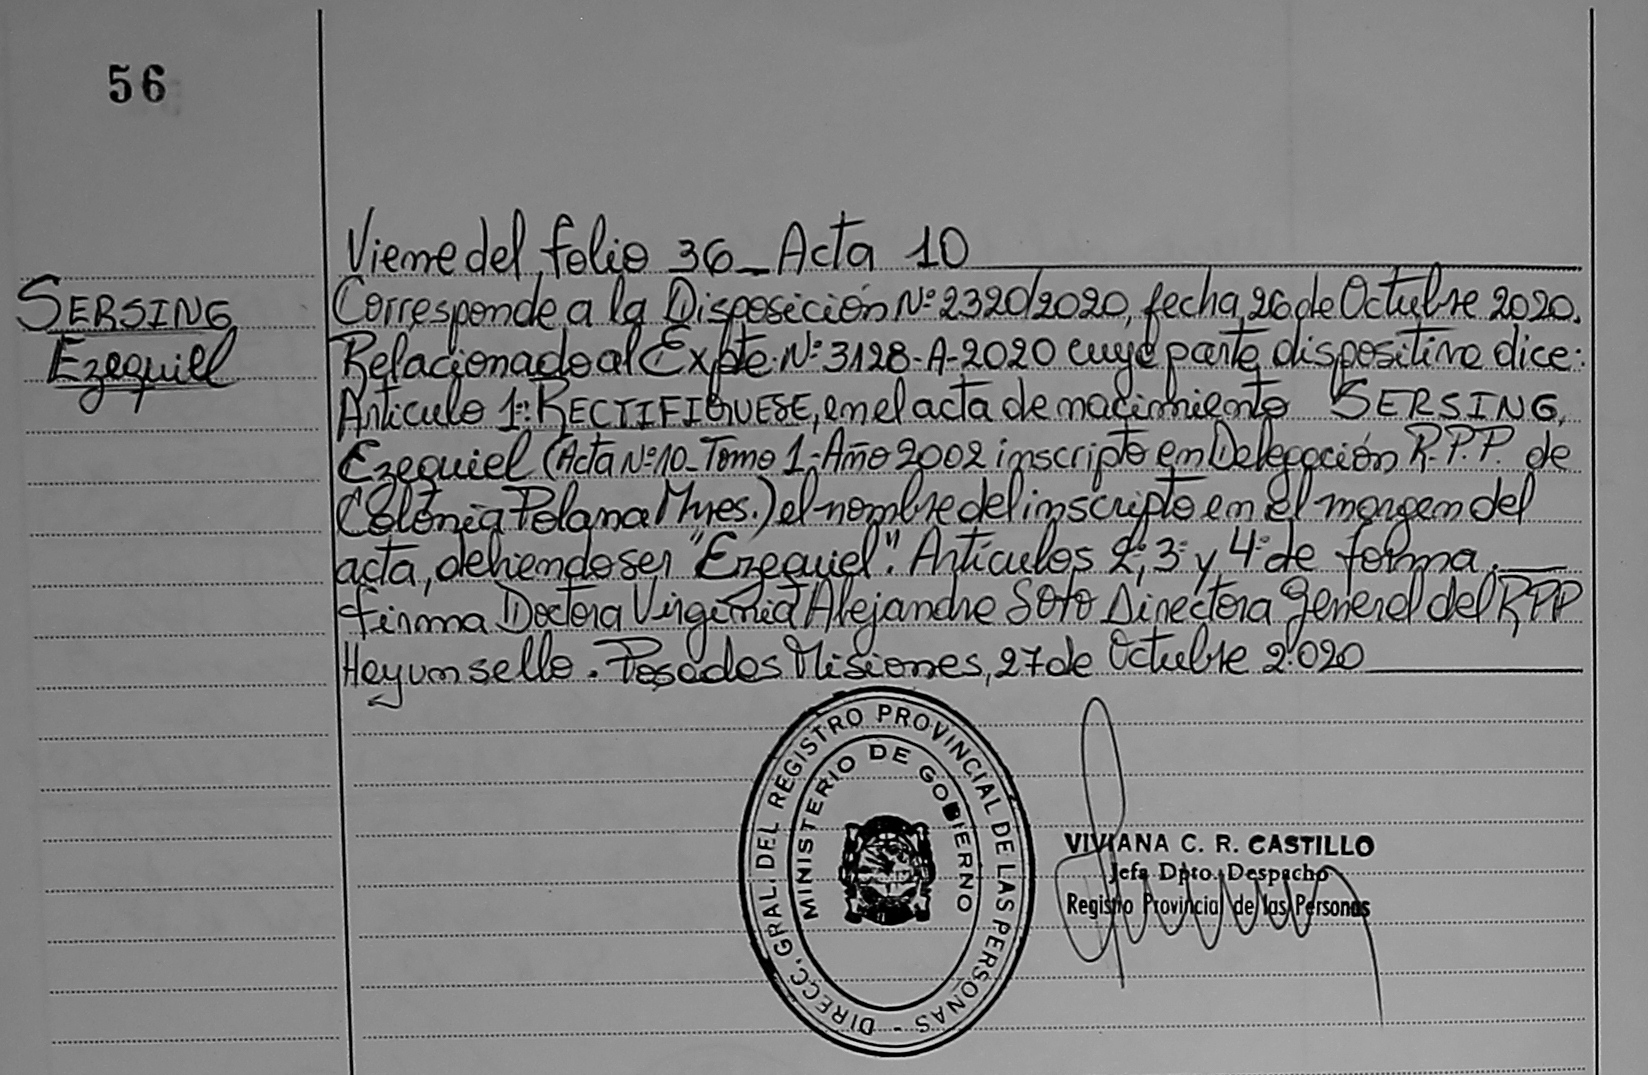 56
SERSING
Ezequiel
Viene del folio 36_ Acta 10
Corresponde a la Disposición Nº 2320/2020, fecha 26 de Octubre 2020.
Relacionado al Expte. Nº 3128-A-2020 cuya parte dispositiva dice:
Artículo 1º: RECTIFIQUESE, en el acta de nacimiento SERSING,
Ezequiel (Acta Nº 10_ Tomo 1_ Año 2002 inscripto en Delegación R.P.P. de
Colonia Polana Mnes.) el nombre del inscripto en el margen del
acta, debiendo ser "Ezequiel". Artículos 2º, 3º y 4º de forma.
firma Doctora Virginia Alejandra Soto Directora General del RPP
Hay un sello. Posadas Misiones, 27 de Octubre 2.020
DIRECC. GRAL. DEL REGISTRO PROVINCIAL DE LAS PERSONAS -
MINISTERIO DE GOBIERNO
VIVIANA C. R. CASTILLO
Jefa Dpto. Despacho
Registro Provincial de las Personas